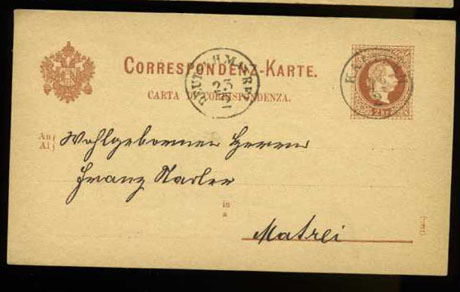 CORRESPONDENZ-KARTE.
23
7
CARTA DI CORRISPONDENZA.
An
Al
Wohlgebornen Herrn
Franz Stadler
in
a
Matrei